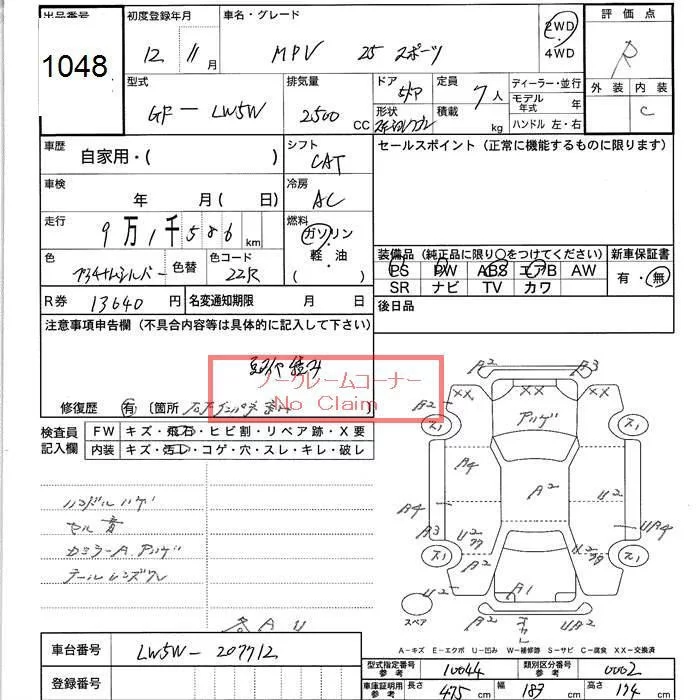 出品番号 初度登録年月 車名・グレード 評価点
1048 12 11月 MPV 25 スポーツ 2WD 4WD R
型式 排気量 ドア 定員 ディーラー・並行 外装 内装
GF-LW5W 2500 CC 5ドア 7人 モデル年式 年 C
形状 積載 kg ハンドル 左・右
車歴 シフト セールスポイント (正常に機能するものに限ります)
自家用・( ) CAT
車検 冷房
年 月(日) AC
走行 燃料
9万1千586km ガソリン
軽油
装備品 (純正品に限り○をつけてください) 新車保証書
色 色替 色コード PS PW ABS エアB AW 有・無
シルバー 22R SR ナビ TV カワ
R券 13640円 名変通知期限 月 日 後日品
注意事項申告欄 (不具合内容等は具体的に記入して下さい)
ノークレームコーナー
No Claim
修復歴 有 〔箇所
検査員記入欄 FW キズ・飛石・ヒビ割・リペア跡・X要
内装 キズ・汚コレ・コゲ・穴・スレ・キレ・破レ
A2 A3
XX XX XX
A2 ス1 アハゲ ス1
A4
A2 U2
A4
A3 U2 UA4
ス1 ス1
U2 A1 U2
A2 A2
ハンドルハゲ
セル音
カミラーA.アハゲ
テールレンズワレ
各AU
スペア
A-キズ E-エクボ U-凹み W-補修跡 S-サビ C-腐食 XX-交換済
車台番号 LW5W-207712
型式指定番号参考 10044 類別区分番号参考 0002
登録番号
車庫証明用参考 長さ 475cm 幅 183cm 高さ 174cm